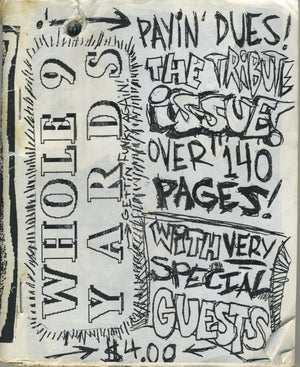 PAYIN' DUES!
THE TRIBUTE
ISSUE!
OVER 140
PAGES!
WITH VERY
SPECIAL
GUESTS
WHOLE 9
YARDS
$4.00